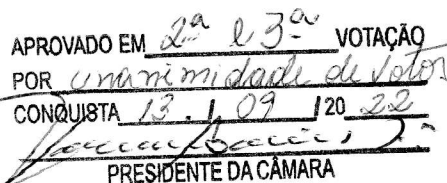 APROVADO EM 2ª e 3ª VOTAÇÃO
POR unanimidade de votos
CONQUISTA 13 / 09 / 20 22
PRESIDENTE DA CÂMARA